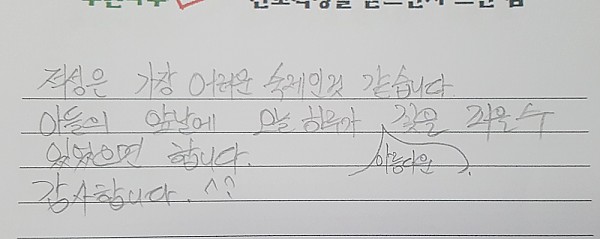 적성은 가장 어려운 숙제인것 같습니다
아들의 앞날에 오늘 하루가 꽃을 피울수
아름다운
있었으면 합니다.
감사합니다. ^^